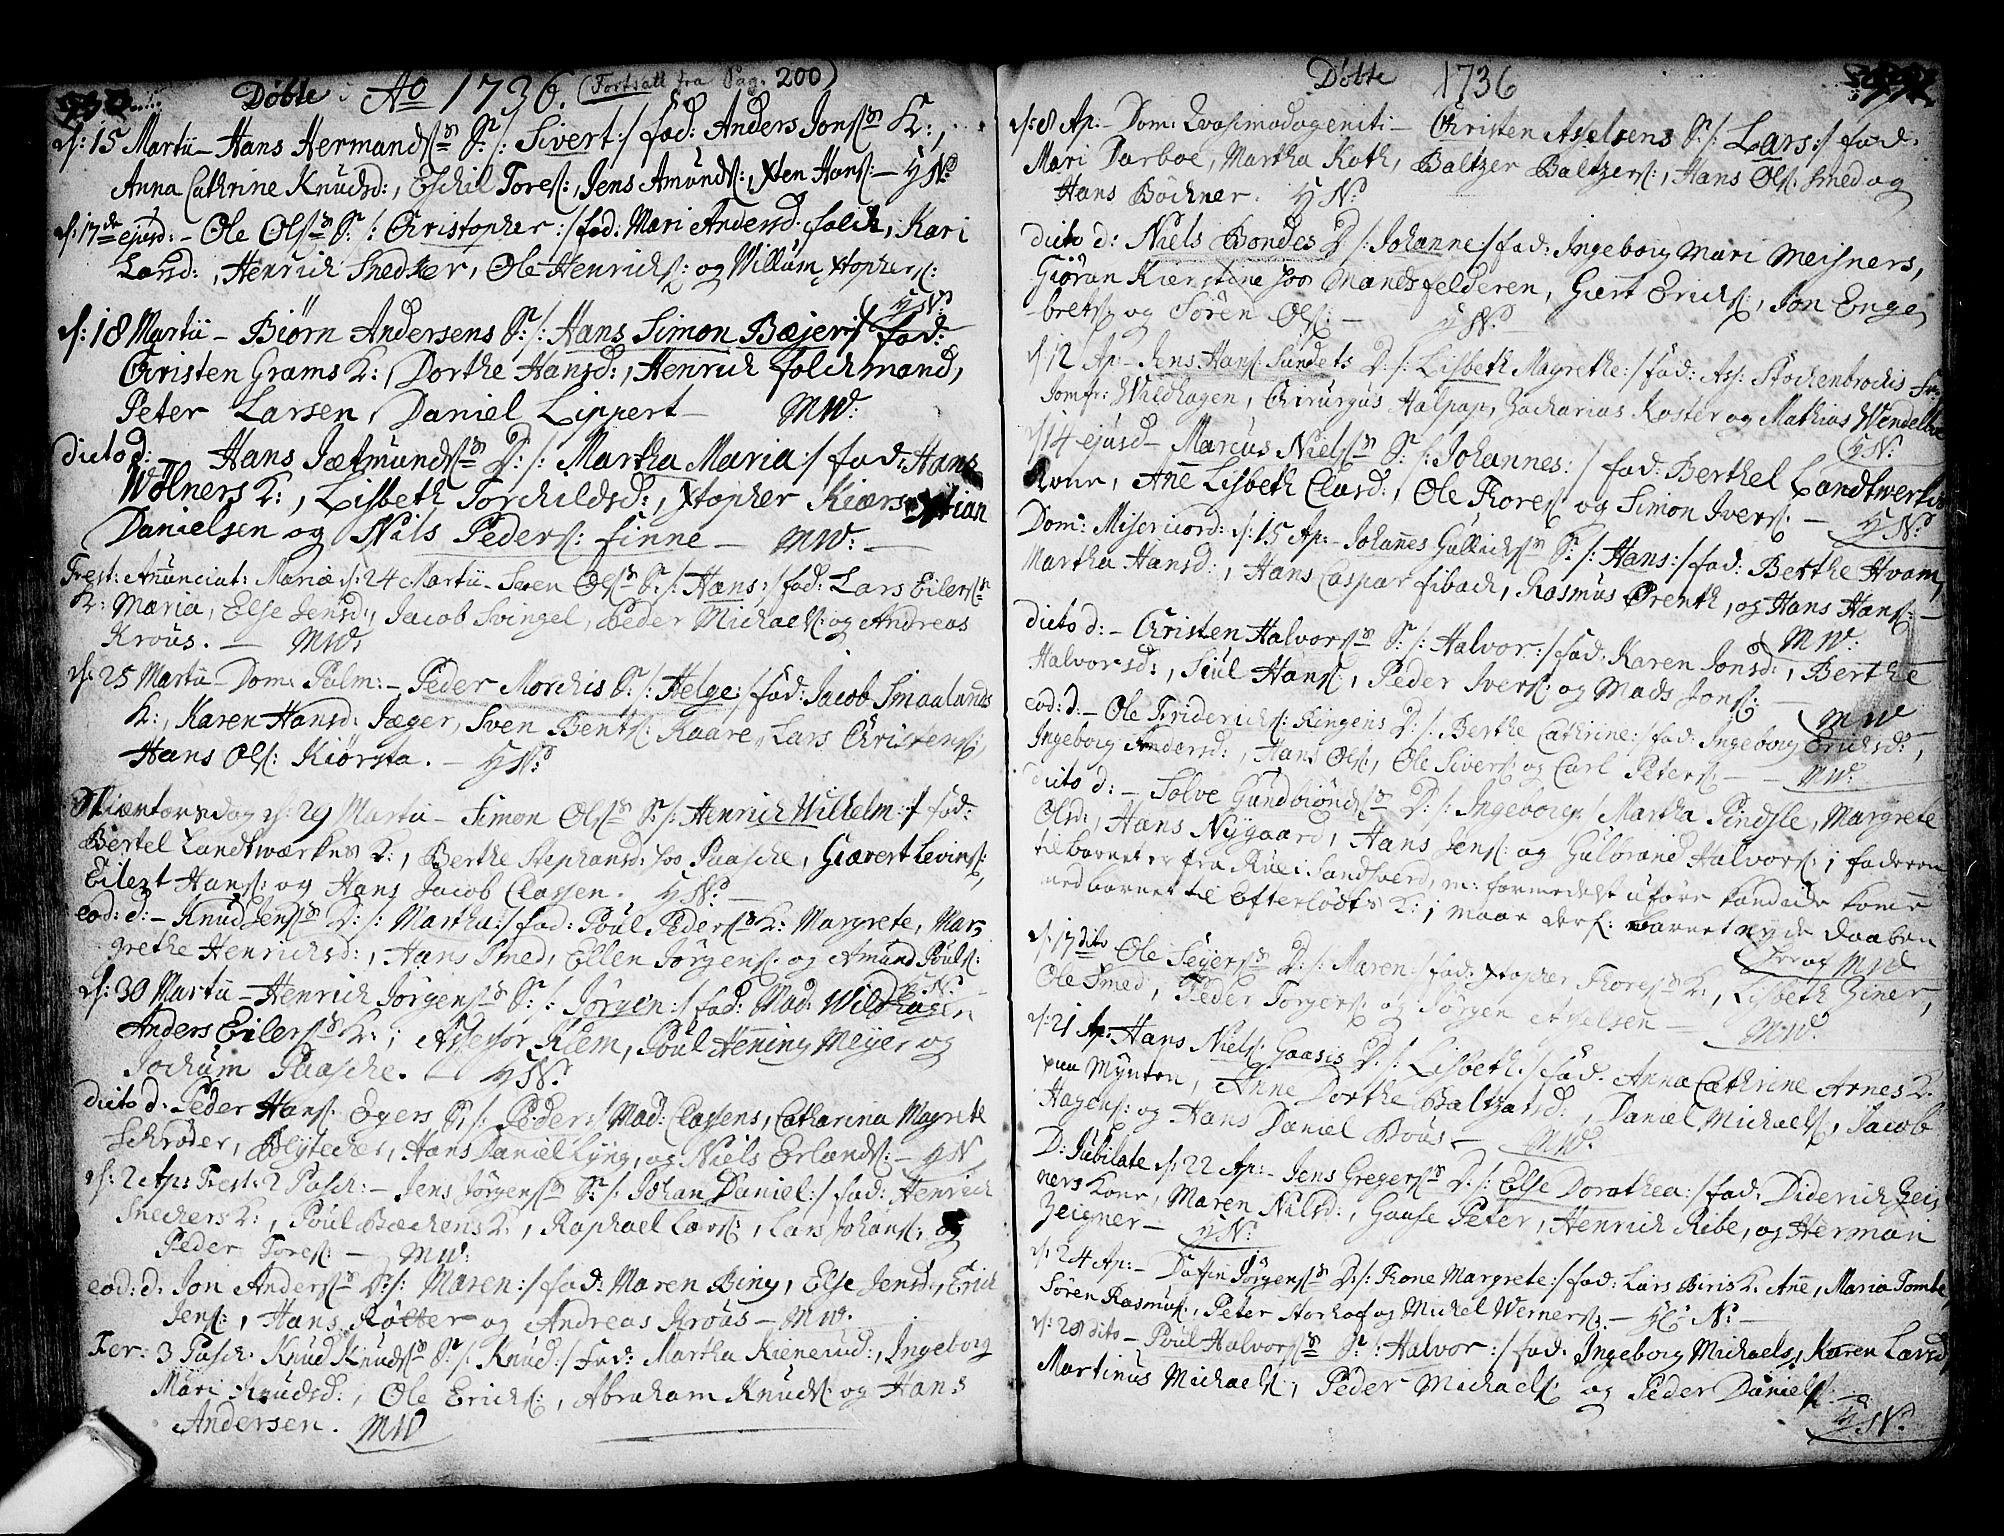 Döbte Ao 1736. (Fortsatt fra Pag. 200)
d: 15 Martii – Hans Hermands: S: /: Sivert :/ fad: Anders Jons: K:,
Anna Cathrine Knudsd:, Eschil Tores:, Jens Amunds:, Xten Hans: – HN:
d: 17de ejusd: – Ole Ols: S: /: Christopher :/ fad: Mari Andersd: Folch, Kari
Larsd:, Henrich Snedker, Ole Henrichs: og Willum Xtophers:
HN:
d: 18 Martii – Biørn Andersens S: /: Hans Simon Bæjer :/ fad:
Christen Grams K:, Dorthe Hansd:, Henrich Folchmand,
Peter Larsen, Daniel Lippert – MW:
dicto d: Hans Jætmunds: D: /: Martha Maria :/ fad: Hans
Wølners K:, Lisbeth Torchildsd:, Xtopher Kiærs: Xtian
Danielsen og Nils Peders: Finne – MW: –
Fest: Anunciat: Mariæ d: 24 Martii – Sven Ols: S: /: Hans :/ fad: Lars Eilers:
K: Maria, Else Jensd:, Jacob Svingel, Peder Michaels: og Andreas
Kroüs. – MW:
d: 25 Martii – Dom: Palm: – Peder Morchis S: /: Helge :/ fad: Jacob Smaalands
K:, Karen Hansd: Jæger, Sven Bents: Kaare, Lars Christens:,
Hans Ols: Kiørsta. – HN:
Skiærtorsdag d: 29 Martii – Simon Ols: S: /: Henrich Wilhelm :/ fad:
Bertel Landtwærkes K:, Berthe Stephansd: hos Paasche, Giævert Levins:,
Eilert Hans: og Hans Jacob Classen. HN: –
eod: d: – Knud Jens: D: /: Martha :/ fad: Poul Peders: K: Margrete, Mar,
grethe Henrichsd:, Hans Smed, Ellen Jørgens: og Amund Pouls:
HN:
d: 30 Martii – Henrich Jörgens: S: /: Jörgen :/ fad: Mad: Wildhagen
Anders Eilers: K:, Assessor Klem, Poul Henning Meyer og
Jochum Paasche. HN:
dicto d: Peder Hans: Egers S: /: Peder :/ Mad: Classens, Catharina Magrete
Schrøder, Blytecher, Hans Daniel Lyng, og Niels Erlands: – HN
d: 2 Ap: Fest: 2 Pasch: – Jens Jörgens: S: /: Johan Daniel :/ fad: Henrich
Snechers K:, Poul Bechens K:, Raphael Lars:, Lars Johans: og
Peder Tores: – MW:
eod: d. Jon Anders: D: /: Maren :/ fad: Maren Bing, Else Jensd:, Erich
Jens:, Hans Røtter og Andreas Kroüs – MW:
Fer: 3 Pasch: Knud Knuds: S: /: Knud :/ fad: Martha Kienerud:, Ingeborg
Mari Knudsd:, Ole Erichs:, Abraham Knuds: og Hans
Andersen. MW
Döbte 1736
d: 8 Ap: – Dom: Qvasimodogeniti – Christen Axelsens S: /: Lars :/ fad.
Mari Darboe, Martha Koth, Baltzer Baltzers:, Hans Ols: Smed og
Hans Böchner. HN:
dicto d: Niels Bondes D: /: Johanne :/ fad: Ingeborg Mari Meisners,
Giøran Kierstine hos Mandsfelderen, Giert Erichs:, Jon Enge,
brets: og Sören Ols: – HN:
d: 12 Ap: – Jens Hans: Sundets D: /: Lisbeth Magrethe :/ fad: Ass: Stochenbrochs Fr:
Jomfr: Wildhagen, Chirurgus Halpap, Zacharias Koster og Mathias Wendelboe
HN:
d: 14 ejusd – Marcus Niels: S: /: Johannes :/ fad: Berthel Landtwerkes
Kone, Ane Lisbeth Clasd:, Ole Thores: og Simon Ivers: – HN:
Dom: Misericord: d: 15 Ap: – Johannes Gullichs: S: /: Hans :/ fad: Berthe Hvam,
Martha Hansd:, Hans Caspar Fibach, Rasmus Prenth, og Hans Hans: –
MW:
dicto d: – Christen Halvors: S: /: Halvor :/ fad: Karen Jonsd:, Berthe
Halvorsd:, Siul Hans:, Peder Ivers: og Mads Jons: –
MW
eod: d: – Ole Friderichs: Ringens D: /: Berthe Cathrine :/ fad: Ingeborg Erichsd:,
Ingeborg Andersd:, Hans Ols:, Ole Sivers: og Carl Peters: – MW:
dicto d: – Solve Gundbiønds: D: /: Ingeborg :/ Martha Pindsle, Margrete
Olsd:, Hans Nygaard, Hans Jens: og Gulbrand Halvors: ; faderen
til barnet er fra Rue i Sandsverd, m: formedelst uföre kunde icke komme
med barnet til Efterlödts K: ; maae derf: barnet nyde daaben
heraf MW
d: 17 dito Ole Sejers: D: /: Maren :/ fad: Xtopher Thores: K:, Lisbeth Ziner,
Ole Smed, Peder Torgers: og Jörgen Axelsen – MW:
d: 21 Ap: Hans Niels: Gaasis D: /: Lisbeth :/ fad: Anna Cathrine Arnes K:
paa Mynten, Anne Dorthe Baltzarsd:, Daniel Michaels:, Jacob
Hagens: og Hans Daniel Boüs – MW:
D: Jubilate d: 22 Ap: – Jens Gregers: D: /: Else Dorothea :/ fad: Diderich Zeig
ners Kone, Maren Nilsd:, Gaase Peter, Henrich Ribe, og Herman
Zeigner – HN:
d: 24 Ap: – Daffin Jørgens: D: /: Thone Margrete :/ fad: Lars Biris K: Ane, Maria Tomte,
Sören Rasmus:, Peter Storhof og Michel Werners: – H: N: –
d: 28 dito – Poul Halvors: S: /: Halvor :/ fad. Ingeborg Michaels, Karen Larsd,
Martinus Michaels:, Peder Michaels: og Peder Daniels: –
HN: